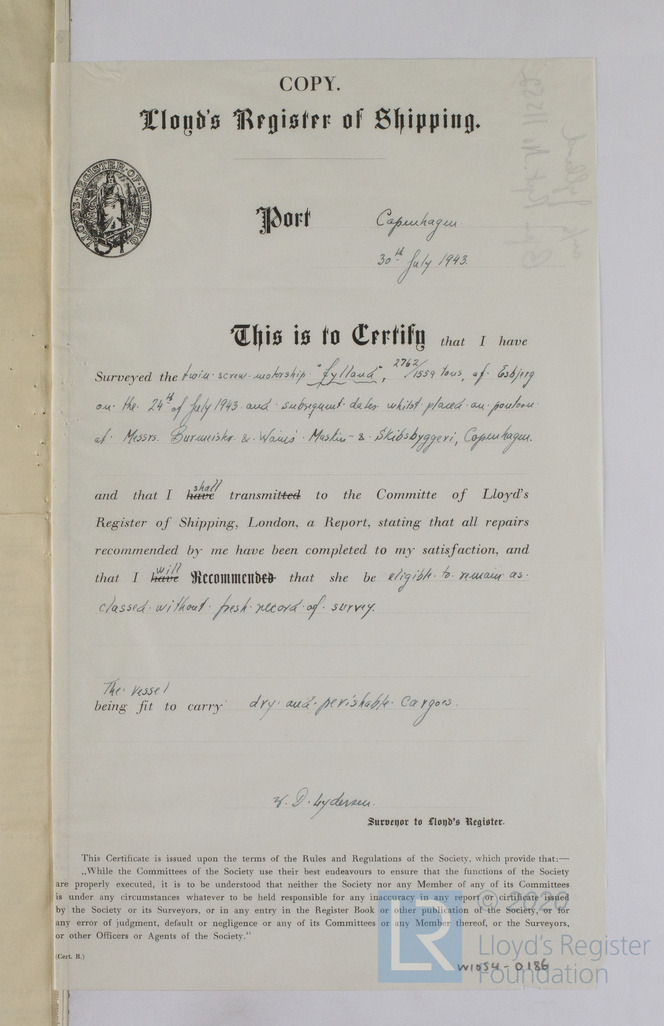 COPY.
Lloyd's Register of Shipping.
LLOYD'S · REGISTER · OF · SHIPPING
Port Copenhagen
30th July 1943.
This is to Certify that I have
Surveyed the twin screw motorship "Jylland", 2762/1559 tons, of Esbjerg
on the 24th of July 1943 and subsequent dates whilst placed on pontoon
at Messrs. Burmeister & Wain's Maskin- & Skibsbyggeri, Copenhagen.
shall
and that I have transmitted to the Committe of Lloyd's
Register of Shipping, London, a Report, stating that all repairs
recommended by me have been completed to my satisfaction, and
will
that I have Recommended that she be eligible to remain as
classed without fresh record of survey.
The vessel
being fit to carry dry and perishable cargoes.
Surveyor to Lloyd's Register.
This Certificate is issued upon the terms of the Rules and Regulations of the Society, which provide that:—
„While the Committees of the Society use their best endeavours to ensure that the functions of the Society
are properly executed, it is to be understood that neither the Society nor any Member of any of its Committees
is under any circumstances whatever to be held responsible for any inaccuracy in any report or certificate issued
by the Society or its Surveyors, or in any entry in the Register Book or other publication of the Society, or for
any error of judgment, default or negligence or any of its Committees or any Member thereof, or the Surveyors,
or other Officers or Agents of the Society."
(Cert. B.)
© 2020
LR
Lloyd's Register
Foundation
W1054-0186